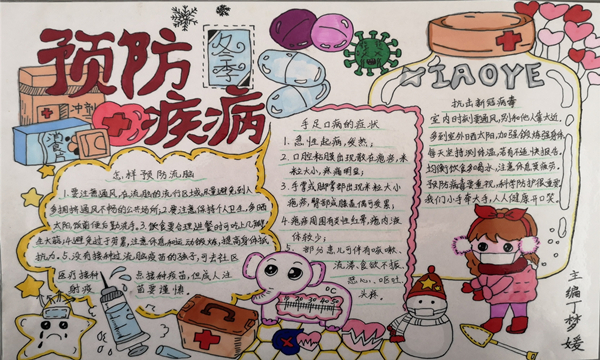 预防
疾病
冬季
XIAOYE
冲剂
怎样预防流脑
1.要注意通风,在流脑的流行区域,尽量避免到人
多拥挤通风不畅的公共场所,2.要注意保持个人卫生,多晒
太阳,饭前便后勤洗手,3.饮食要合理,进餐时可吃上几瓣
生大蒜;4.避免过于劳累,注意休息,积极运动锻炼,提高身体抵
抗力。5.没有接种过流脑疫苗的孩子,可去社区
医疗接种疫苗接种疫苗,但成人注
射疫苗要谨慎。
手足口病的症状
1.急性起病,突然;
2.口腔粘膜出现散在疱疹,米
粒大小,疼痛明显;
3.手掌或脚掌部出现米粒大小
疱疹,臀部或膝盖偶可受累;
4.疱疹周围有炎性红晕,疱内液
体较少;
5.部分患儿可伴有咳嗽、
流涕、食欲不振、
恶心、呕吐、
头疼。
抗击新冠病毒
室内时刻要通风,别和他人靠太近。
多到室外晒太阳,加强锻炼强身体。
每天坚持测体温,若有不适快报告。
均衡饮食多喝水,注意休息莫疲劳。
预防病毒要重视,科学防护很重要
我们小手牵大手,人人健康开口笑。
主编:丁梦媛